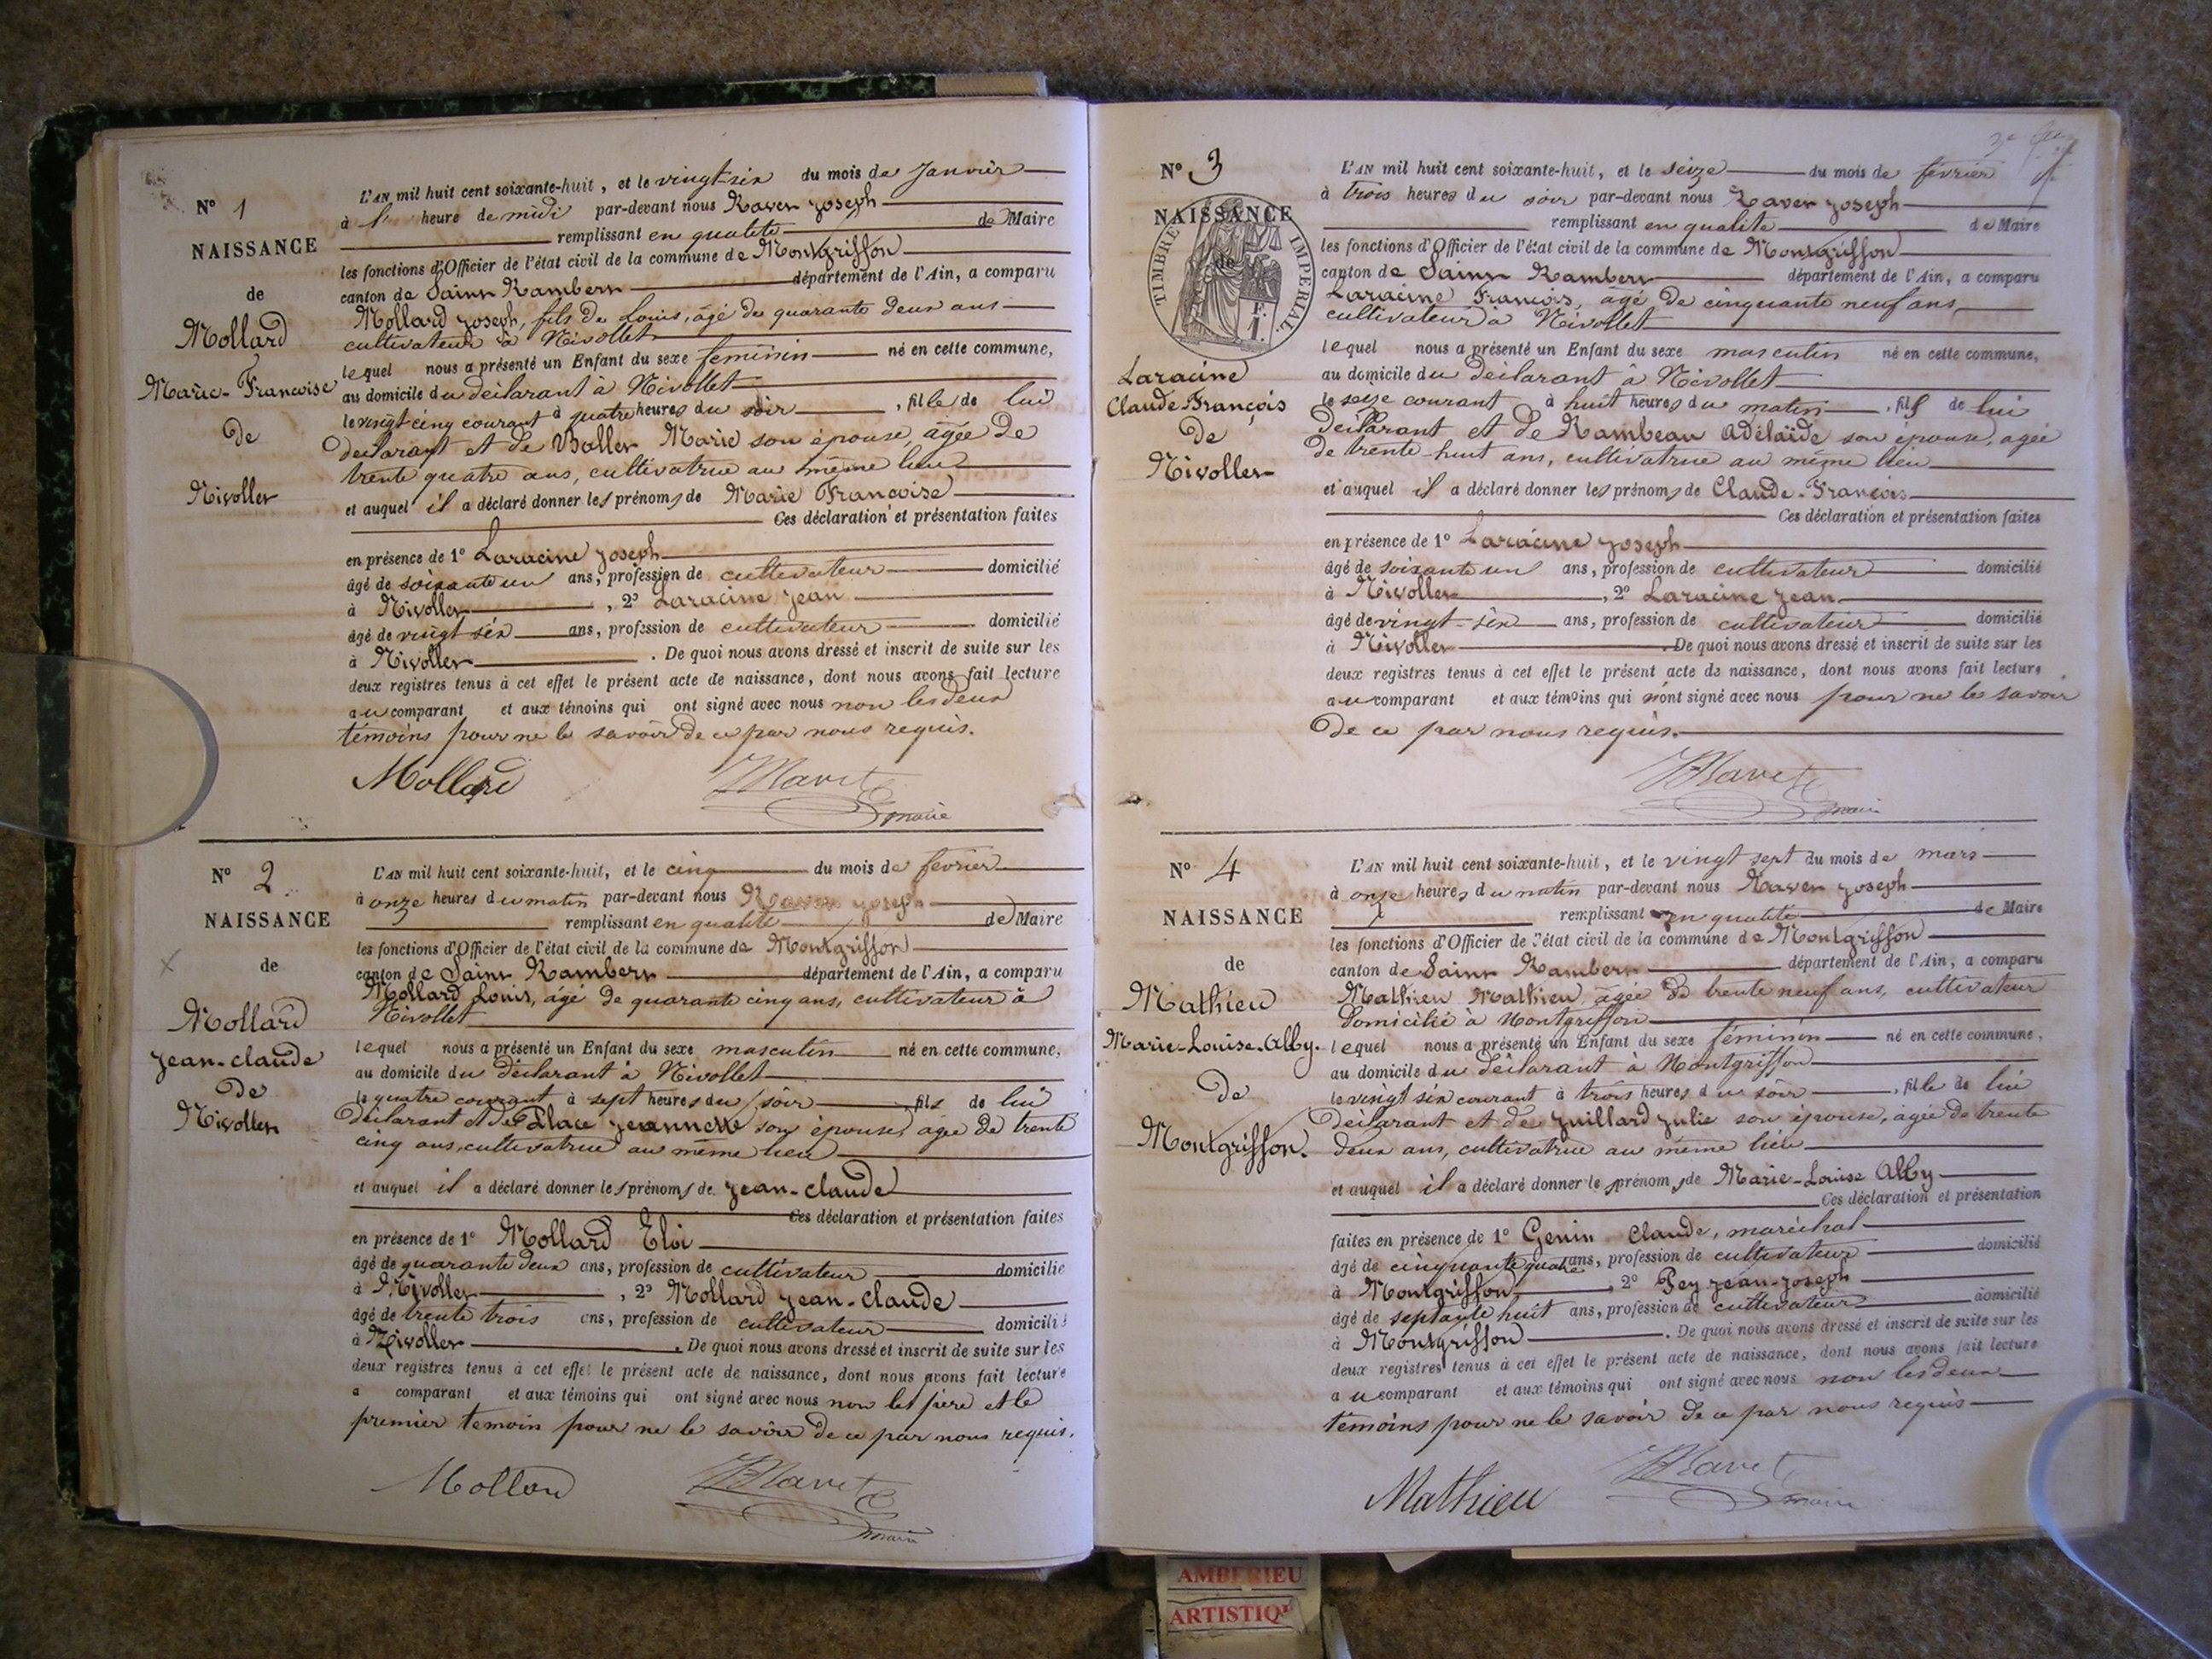 N° 1
NAISSANCE
de
Mollard
Marie-Francoise
De
Nivollet
L'AN mil huit cent soixante-huit, et le vingt-six du mois de Janvier
à heure de midi par-devant nous Ravet Joseph
remplissant en qualité de Maire
les fonctions d'Officier de l'état civil de la commune de Montgriffon
canton de Saint Rambert département de l'Ain, a comparu
Mollard Joseph, fils de Louis, âgé de quarante deux ans
cultivateur à Nivollet
lequel nous a présenté un Enfant du sexe feminin né en cette commune,
au domicile du déclarant à Nivollet
le vingt cinq courant à quatre heures du soir, fille de lui
declarant et de Ballet Marie son épouse, âgée De
trente quatre ans, cultivatrice au même lieu
et auquel il a déclaré donner les prénoms de Marie Francoise
Ces déclaration et présentation faites
en présence de 1° Laracine Joseph
âgé de soixante un ans, profession de cultivateur domicilié
à Nivollet, 2° Laracine Jean
âgé de vingt six ans, profession de cultivateur domicilié
à Nivollet. De quoi nous avons dressé et inscrit de suite sur les
deux registres tenus à cet effet le présent acte de naissance, dont nous avons fait lecture
au comparant et aux témoins qui ont signé avec nous non les deux
témoins pour ne le savoir De ce par nous requis.
Mollard Ravet
maire
N° 2
NAISSANCE
de
Mollard
Jean-claude
De
Nivollet
L'AN mil huit cent soixante-huit, et le cinq du mois de fevrier
à onze heures du matin par-devant nous Ravet Joseph
remplissant en qualité de Maire
les fonctions d'Officier de l'état civil de la commune de Montgriffon
canton de Saint Rambert département de l'Ain, a comparu
Mollard Louis, âgé de quarante cinq ans, cultivateur à
Nivollet
lequel nous a présenté un Enfant du sexe masculin né en cette commune,
au domicile du déclarant à Nivollet
le quatre courant à sept heures du soir, fils de lui
Déclarant et De Place Jeannette son épouse, agée De trente
cinq ans, cultivatrice au même lieu
et auquel il a déclaré donner les prénoms de Jean-claude
Ces déclaration et présentation faites
en présence de 1° Mollard Eloi
âgé de quarante deux ans, profession de cultivateur domicilié
à Nivollet, 2° Mollard Jean-claude
âgé de trente trois ans, profession de cultivateur domicilié
à Nivollet. De quoi nous avons dressé et inscrit de suite sur les
deux registres tenus à cet effet le présent acte de naissance, dont nous avons fait lecture
a comparant et aux témoins qui ont signé avec nous non le père et le
premier temoin pour ne le savoir De ce par nous requis.
Mollard Ravet
maire
N° 3
NAISSANCE
de
TIMBRE IMPERIAL
Laracine
Claude François
De
Nivollet
L'AN mil huit cent soixante-huit, et le seize du mois de fevrier
à trois heures du soir par-devant nous Ravet Joseph
remplissant en qualité de Maire
les fonctions d'Officier de l'état civil de la commune de Montgriffon
canton de Saint Rambert département de l'Ain, a comparu
Laracine Francois, agé De cinquante neuf ans,
cultivateur à Nivollet
lequel nous a présenté un Enfant du sexe masculin né en cette commune,
au domicile du déclarant à Nivollet
le seize courant à huit heures du matin, fils de lui
Déclarant et de Rambeau Adélaïde son épouse, agée
De trente-huit ans, cultivatrice au même lieu
et auquel il a déclaré donner les prénoms de Claude-Francois
Ces déclaration et présentation faites
en présence de 1° Laracine Joseph
âgé de soixante un ans, profession de cultivateur domicilié
à Nivollet, 2° Laracine Jean
âgé de vingt-six ans, profession de cultivateur domicilié
à Nivollet. De quoi nous avons dressé et inscrit de suite sur les
deux registres tenus à cet effet le présent acte de naissance, dont nous avons fait lecture
au comparant et aux témoins qui n'ont signé avec nous pour ne le savoir
De ce par nous requis.
Ravet
maire
N° 4
NAISSANCE
de
Mathieu
Marie-Louise-Alby.
De
Montgriffon.
L'AN mil huit cent soixante-huit, et le vingt sept du mois de mars
à onze heures du matin par-devant nous Ravet Joseph
remplissant en qualité de Maire
les fonctions d'Officier de l'état civil de la commune de Montgriffon
canton de Saint Rambert département de l'Ain, a comparu
Mathieu Mathieu, agée De trente neuf ans, cultivateur
Domicilié à Montgriffon
lequel nous a présenté un Enfant du sexe féminin né en cette commune,
au domicile du déclarant à Montgriffon
le vingt six courant à trois heures du soir, fille de lui
Déclarant et de Juillard Julie son épouse, agée de trente
deux ans, cultivatrice au même lieu
et auquel il a déclaré donner les prénoms de Marie-Louise Alby
Ces déclaration et présentation
faites en présence de 1° Genin Claude, maréchal
âgé de cinquante quatre ans, profession de cultivateur domicilié
à Montgriffon, 2° Pey Jean-Joseph
âgé de septante huit ans, profession de cultivateur domicilié
à Montgriffon. De quoi nous avons dressé et inscrit de suite sur les
deux registres tenus à cet effet le présent acte de naissance, dont nous avons fait lecture
au comparant et aux témoins qui ont signé avec nous non les deux
témoins pour ne le savoir De ce par nous requis
Mathieu Ravet
maire
AMBERIEU
ARTISTIQUE